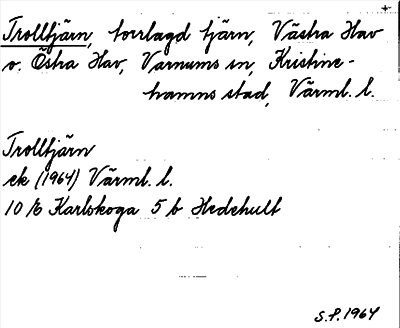 Trolltjärn, torrlagd tjärn, Västra Hav
o. Östra Hav, Varnums sn, Kristine-
hamns stad, Värml. l.
Trolltjärn
ek (1964) Värml. l.
10 E Karlskoga 5 b Hedehult
S.P. 1964